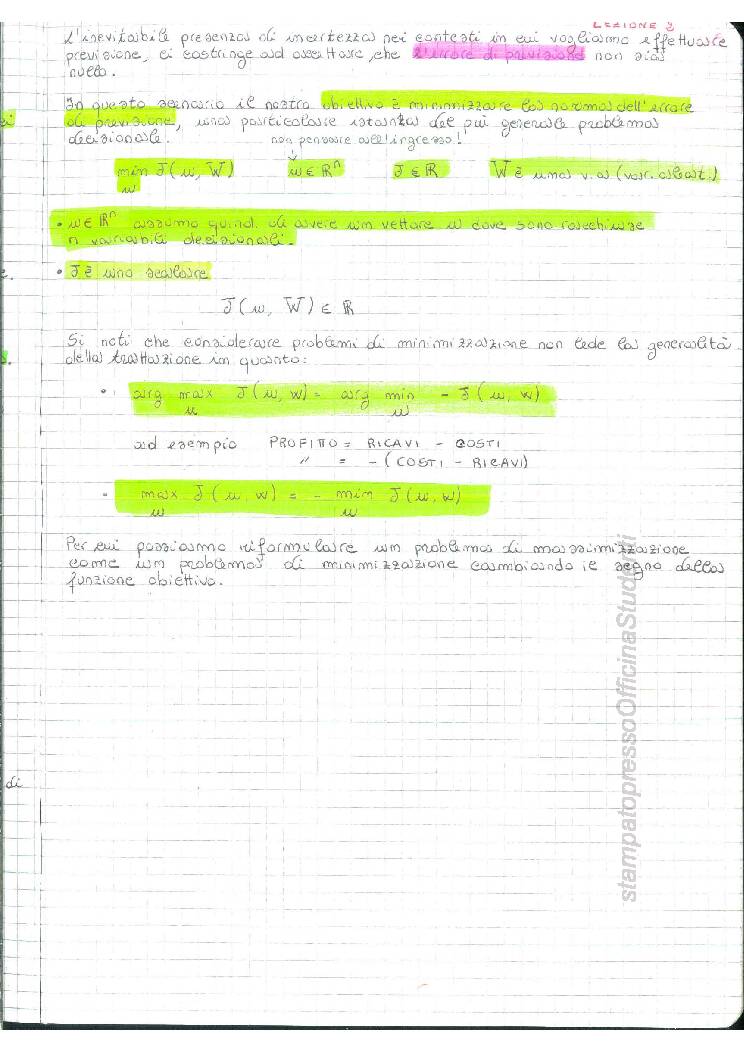 LEZIONE 3
L'inevitabile presenza di incertezza nei contesti in cui vogliamo effettuare
previsione, ci costringe ad accettare, che l'errore di previsione non sia
nullo.
In questo scenario il nostro obiettivo è minimizzare la norma dell'errore
di previsione, una particolare istanza del più generale problema
decisionale. non pensare all'ingresso!
min J(u, W) u ∈ ℝⁿ J ∈ ℝ W è una v.a (var. aleat.)
u
• u ∈ ℝⁿ assumo quindi di avere un vettore u dove sono racchiuse
n variabili decisionali.
• J è uno scalare
J(u, W) ∈ ℝ
Si noti che considerare problemi di minimizzazione non lede la generalità
della trattazione in quanto:
• arg max J(u, w) = arg min - J(u, w)
u u
ad esempio PROFITTO = RICAVI - COSTI
" = - (COSTI - RICAVI)
• max J(u, w) = - min J(u, w)
u u
Per cui possiamo riformulare un problema di massimizzazione
come un problema di minimizzazione cambiando il segno della
funzione obiettivo.
di
stampatopressoOfficinaStudenti